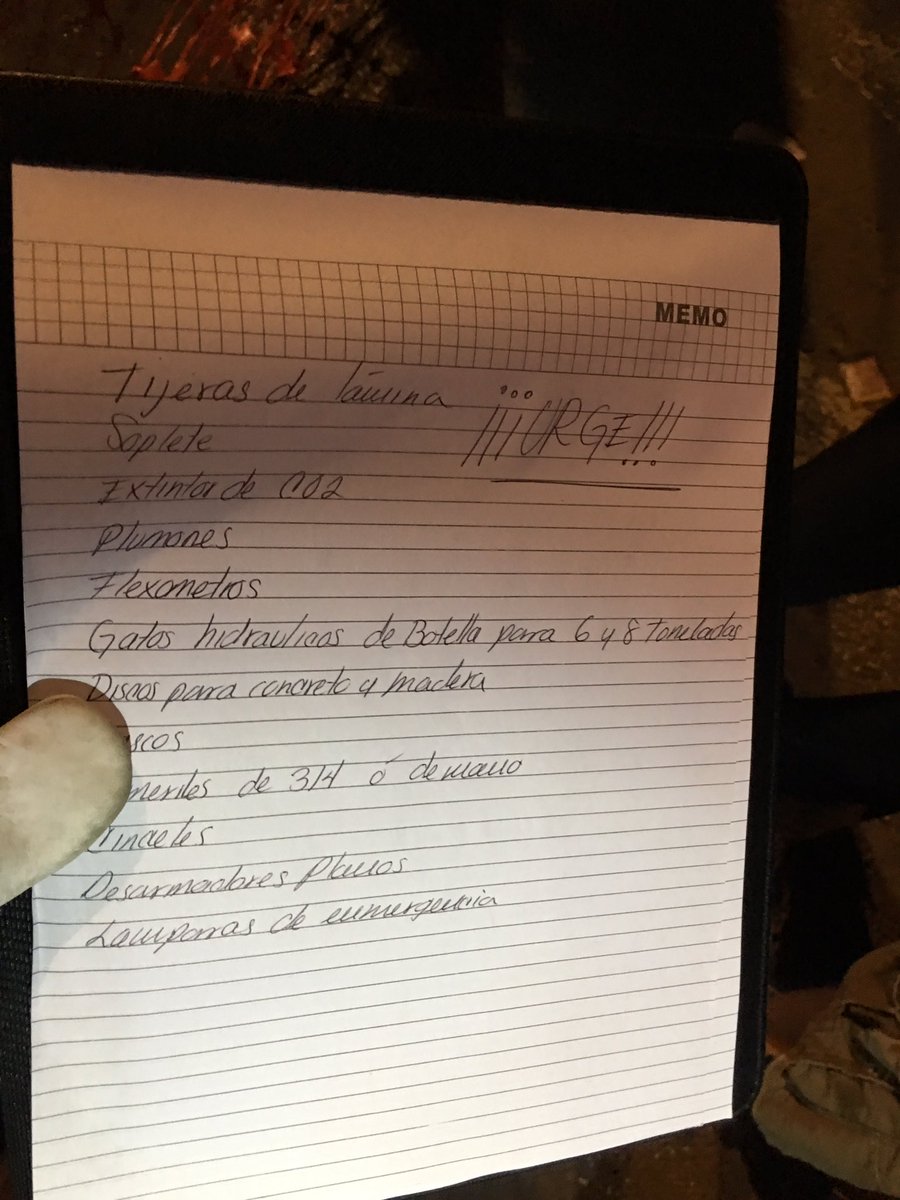 MEMO
Tijeras de lámina
¡¡¡URGE!!!
Soplete
Extintor de CO2
Plumones
Flexometros
Gatos hidraulicos de Botella para 6 y 8 Toneladas
Discos para concreto y madera
scos
meriles de 314 ó de mano
Cinceles
Desarmadores Planos
Lamparas de enmergencia